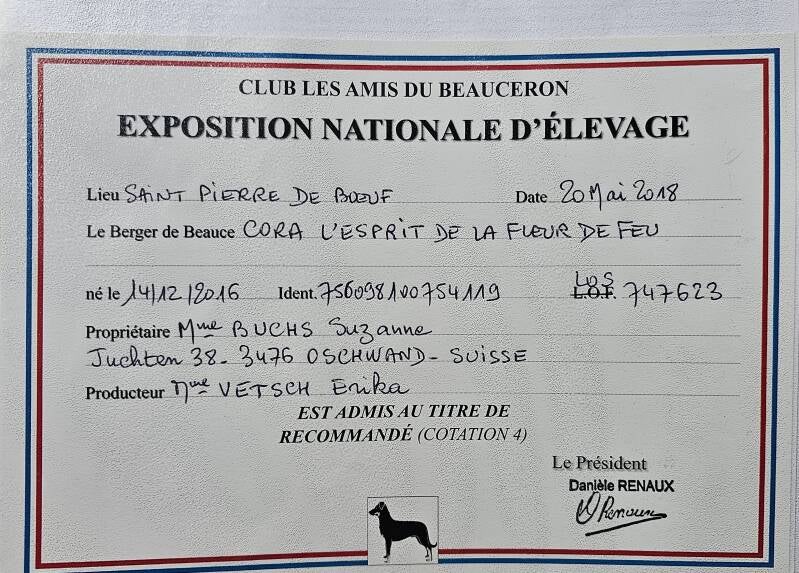 CLUB LES AMIS DU BEAUCERON
EXPOSITION NATIONALE D'ÉLEVAGE
Lieu SAINT PIERRE DE BŒUF Date 20 Mai 2018
Le Berger de Beauce CORA L'ESPRIT DE LA FLEUR DE FEU
né le 14/12/2016 Ident. 756098100754119 LOS L.O.F. 747623
Propriétaire Mme BUCHS Suzanne
Juchten 38 - 3476 OSCHWAND - SUISSE
Producteur Mme VETSCH Erika
EST ADMIS AU TITRE DE
RECOMMANDÉ (COTATION 4)
Le Président
Danièle RENAUX
DRenaux